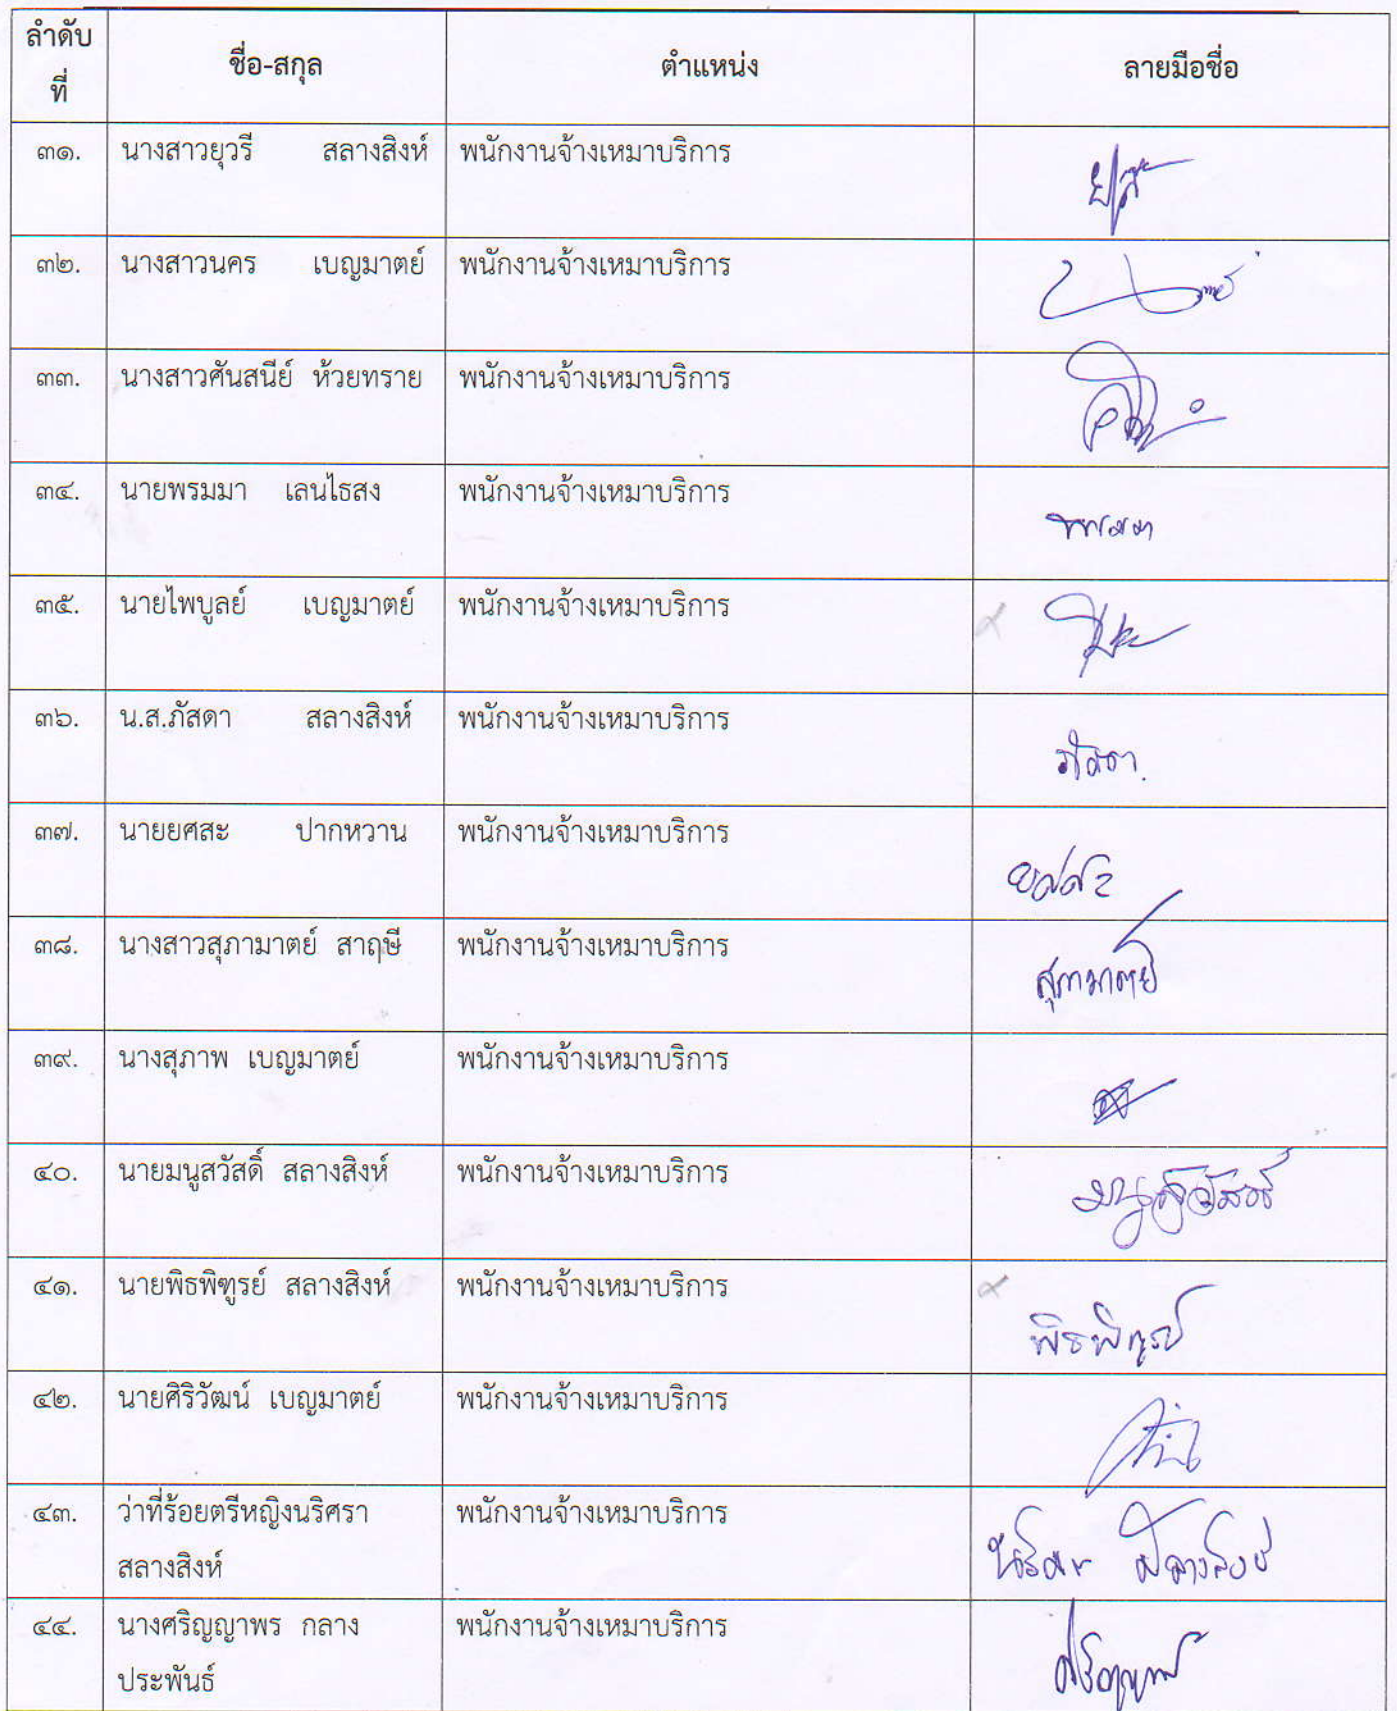 ลำดับ
ที่
ชื่อ-สกุล ตำแหน่ง ลายมือชื่อ
๓๑. นางสาวยุวรี สลางสิงห์ พนักงานจ้างเหมาบริการ
๓๒. นางสาวนคร เบญมาตย์ พนักงานจ้างเหมาบริการ
๓๓. นางสาวศันสนีย์ ห้วยทราย พนักงานจ้างเหมาบริการ
๓๔. นายพรมมา เลนไธสง พนักงานจ้างเหมาบริการ พรมมา
๓๕. นายไพบูลย์ เบญมาตย์ พนักงานจ้างเหมาบริการ
๓๖. น.ส.ภัสดา สลางสิงห์ พนักงานจ้างเหมาบริการ ภัสดา
๓๗. นายยศสะ ปากหวาน พนักงานจ้างเหมาบริการ ยศสะ
๓๘. นางสาวสุภามาตย์ สาฤษี พนักงานจ้างเหมาบริการ สุภามาตย์
๓๙. นางสุภาพ เบญมาตย์ พนักงานจ้างเหมาบริการ
๔๐. นายมนูสวัสดิ์ สลางสิงห์ พนักงานจ้างเหมาบริการ มนูสวัสดิ์
๔๑. นายพิธพิฑูรย์ สลางสิงห์ พนักงานจ้างเหมาบริการ พิธพิฑูรย์
๔๒. นายศิริวัฒน์ เบญมาตย์ พนักงานจ้างเหมาบริการ
๔๓. ว่าที่ร้อยตรีหญิงนริศรา พนักงานจ้างเหมาบริการ
สลางสิงห์ นริศรา สลางสิงห์
๔๔. นางศริญญาพร กลาง พนักงานจ้างเหมาบริการ
ประพันธ์ ศริญญาพร